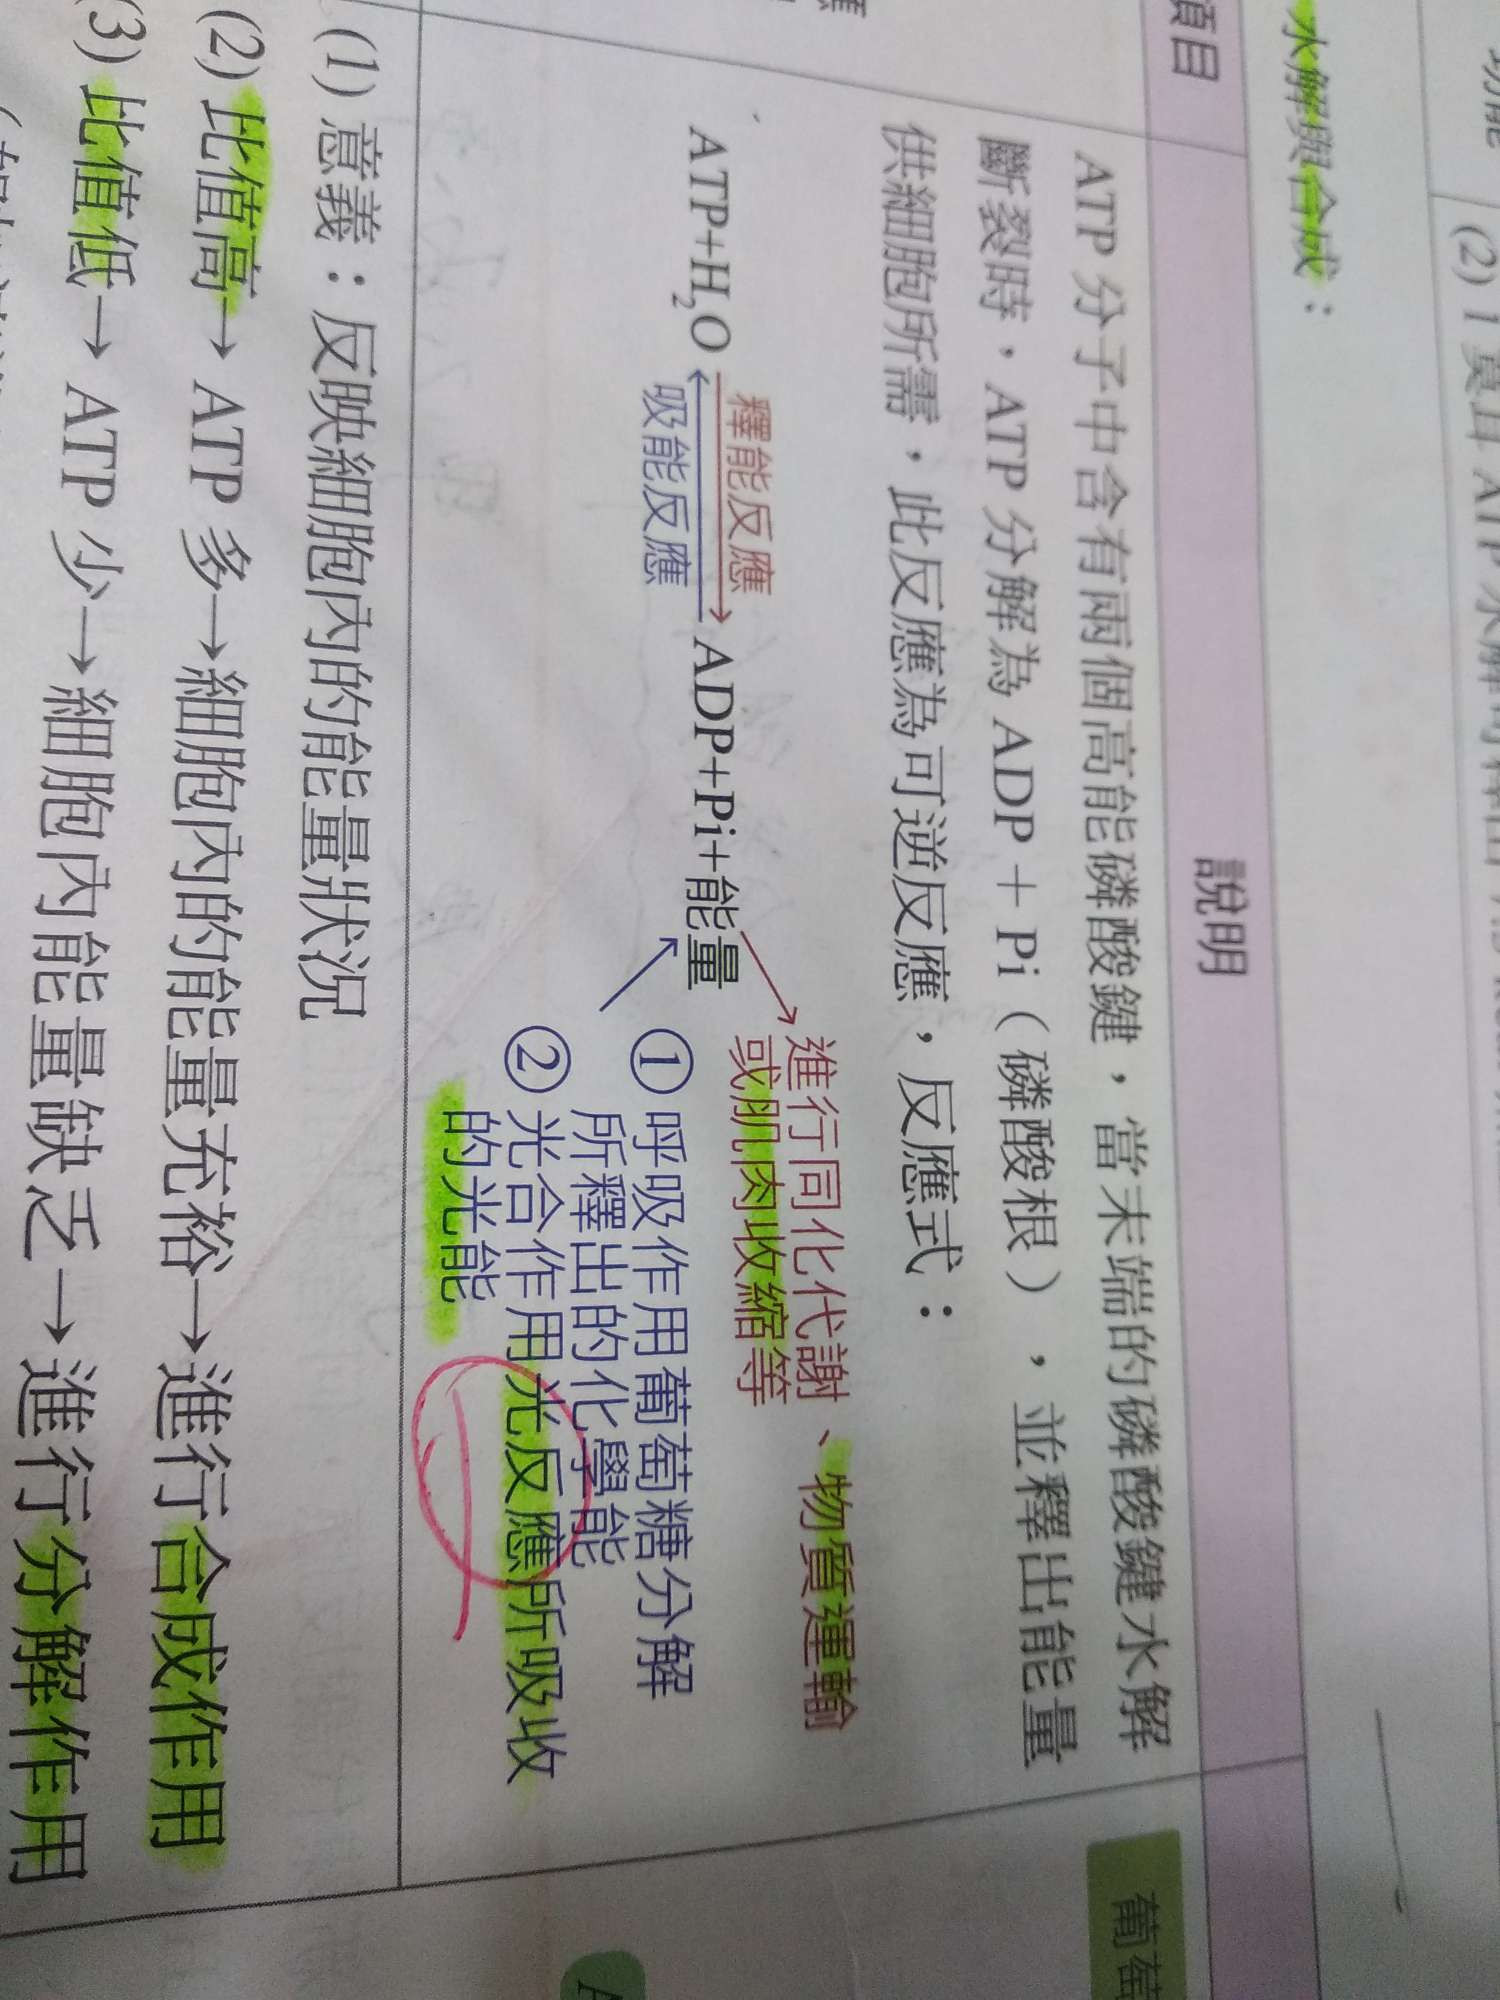 功能
(2) 1 莫耳 ATP 水解可釋出
水解與合成：
項目
說明
ATP 分子中含有兩個高能磷酸鍵，當末端的磷酸鍵水解
斷裂時，ATP 分解為 ADP + Pi（磷酸根），並釋出能量
供細胞所需，此反應為可逆反應，反應式：
進行同化代謝、物質運輸
或肌肉收縮等
釋能反應
ATP+H₂O ADP+Pi+能量
吸能反應
① 呼吸作用葡萄糖分解
所釋出的化學能
② 光合作用光反應所吸收
的光能
(1) 意義：反映細胞內的能量狀況
(2) 比值高→ ATP 多→細胞內的能量充裕→進行合成作用
(3) 比值低→ ATP 少→細胞內能量缺乏→進行分解作用
葡萄